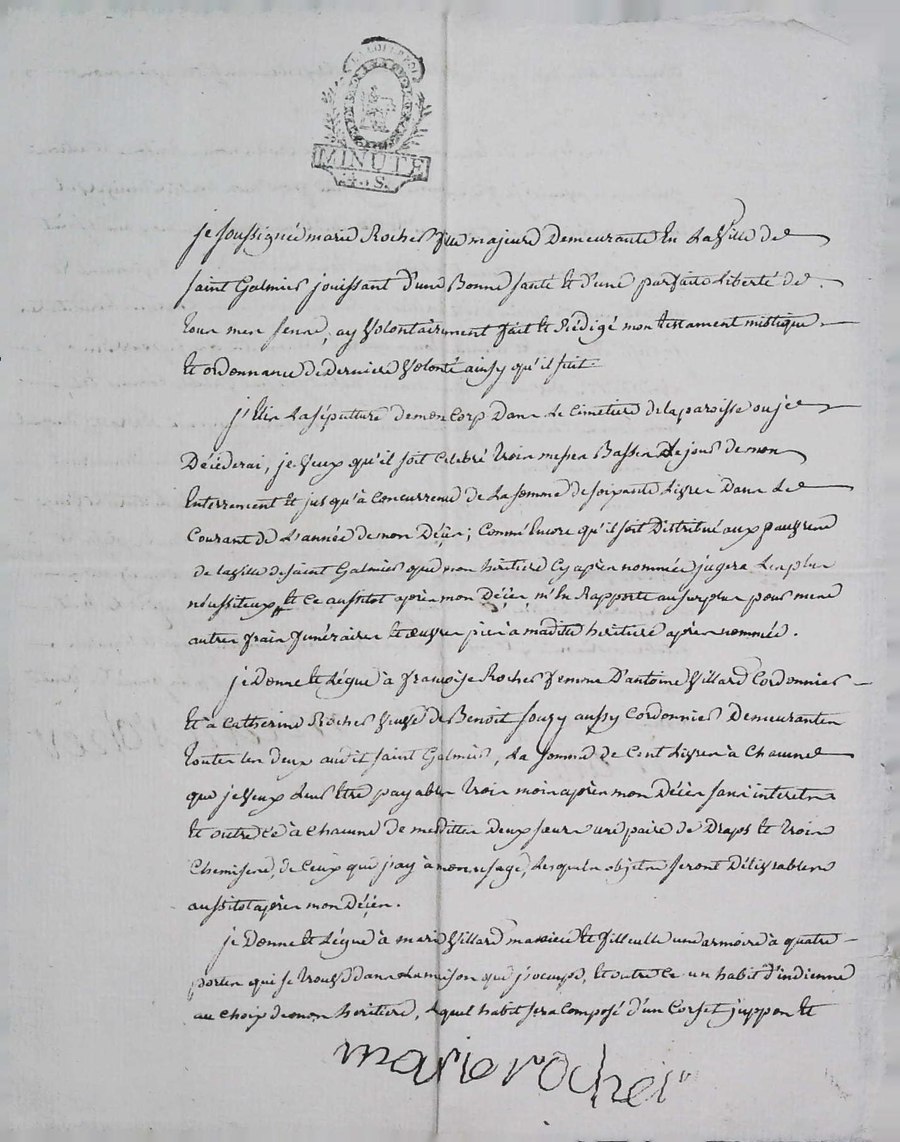 MINUTE
4. S.
je soussignée marie Rocher fille majeure Demeurante En La Ville de
saint Galmier jouissant d'une Bonne santé Et d'une parfaite Liberté de
tous mes sens, ay Volontairement fait Et Rédigé mon testament mistique
Et ordonnance de derniere Volonté ainsy qu'il suit.
j'Elis La sépulture de mon Corp Dans Le Cimetiere de la paroisse ou je
Décéderai, je Veux qu'il soit Celebré trois messes Basses Le jour de mon
Enterrement Et jusqu'à Concurrence de La somme de soixante Livres Dans Le
Courant de L'année de mon Décès; Comme Encore qu'il soit Distribué aux pauvres
de la Ville de saint Galmier que mon héritiere Cy après nommée jugera Les plus
néssiteux Et Ce aussitot après mon Décès m'En Rapporte au surplus pour mes
autres frais funéraires Et œuvres pies à madite heritiere après nommée.
je Donne Et Légue à françoise Rocher femme D'antoine Villard Cordonnier
Et à Catherine Rocher Veuve de Benoit Souzy aussy Cordonnier Demeurantes
toutes Les deux audit saint Galmier, La somme de Cent Livres à Chacune
que je Veux Leur Etre payables trois mois après mon Décès sans interets
Et outre Ce à Chacune de mesdittes Deux sœurs une paire de Draps Et trois
Chemises, de Ceux que j'ay à mon usage, Lesquels objets seront Délivrables
aussitot après mon Décès.
je Donne Et Légue à marie Villard ma niece Et filleulle une armoire à quatre
portes qui se trouve dans La maison que j'occupe, Et outre Ce un habit d'indienne
au choix de mon heritiere, Lequel habit sera Composé d'un Corset juppon Et
marie rocher